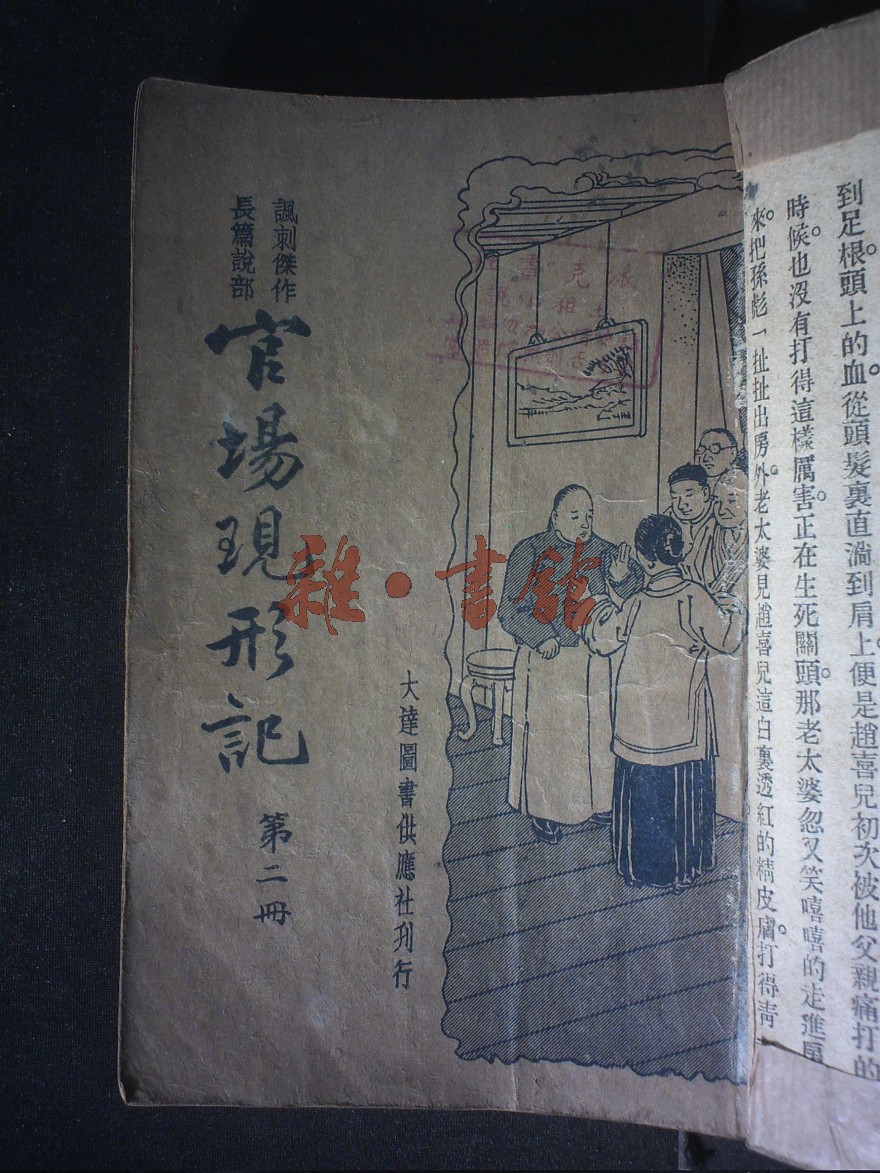 到足根頭上的血。從頭髮裏直淌到肩上。便是趙喜兒初次被他父親痛打的
時候。也沒有打得這樣厲害。正在生死關頭。那老太婆忽又笑嘻嘻的走進
來。把孫彪一扯扯出房外。老太婆見趙喜兒這白裏透紅的精皮膚。打得青一
諷刺傑作
長篇說部
官場現形記
第二冊
大達圖書供應社刊行
雜·書館